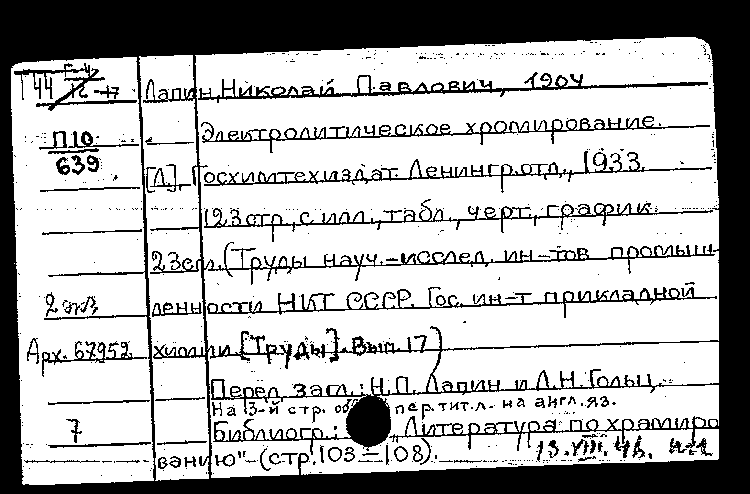 Т44
Лапин, Николай Павлович, 1904
П10
639
Электролитическое хромирование.
[Л.], Госхимтехиздат. Ленингр. отд., 1933.
123 стр., с илл., табл., черт., график.
23 см. (Труды науч.-исслед. ин-тов промыш-
2 экз
ленности НКТ СССР. Гос. ин-т прикладной
Арх. 67952
химии [Труды]. Вып. 17)
Перед загл.: Н.П. Лапин и Л.Н. Гольц.
На 3-й стр. пер. тит. л. на англ. яз.
7
Библиогр.: „Литература по хромиро
ванию" (стр. 103–108).
13.VIII.4